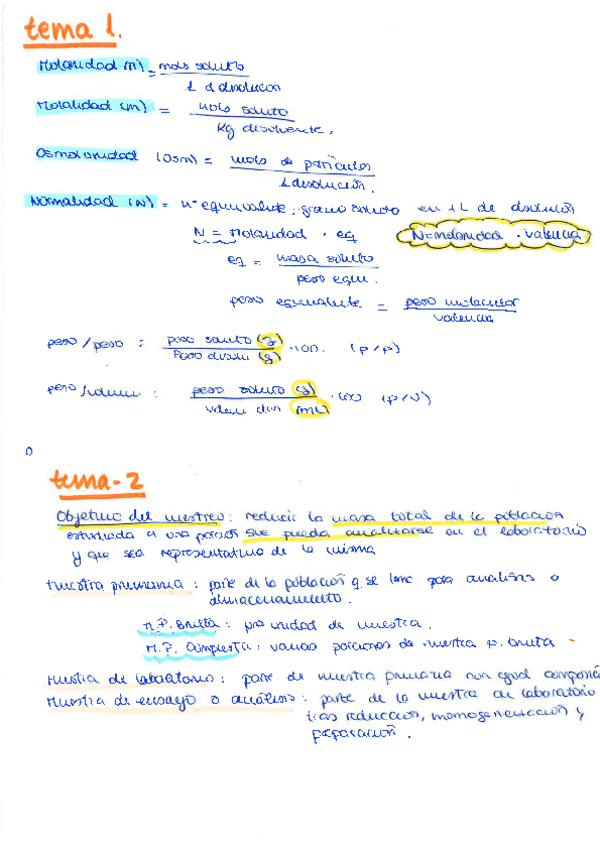 tema 1.
Molaridad (M) = mols soluto
L d disolucion
Molalidad (m) = mols soluto
Kg disolvente.
Osmolaridad (Osm) = mols de particulas
L disolución.
Normalidad (N) = nº equivalente; gramo soluto en 1L de disolución
N = Molaridad . eq N = molaridad . valencia
eq = masa soluto
peso equi.
peso equivalente = peso molecular
valencia
peso/peso : peso soluto (g) .100. (p/p)
Peso disolu (g)
peso/volum : peso soluto (g) .100 (p/v)
volum disn (mL)
tema-2
Objetivo del mestreo: reducir la masa total de la poblacion
estudiada a una porcion que pueda analizarse en el laboratorio
y que sea representativa de la misma
Muestra primaria : parte de la población q se toma para analisis o
almacenamiento.
M.P. Bruta: pra unidad de muestra.
M.P. Compuesta: varias porciones de muestra p. bruta
Muestra de laboratorio : parte de muestra primaria con igual composición
Muestra de ensayo o análisis : parte de la muestra de laboratorio
tras reduccion, homogeneizacion y
preparación.